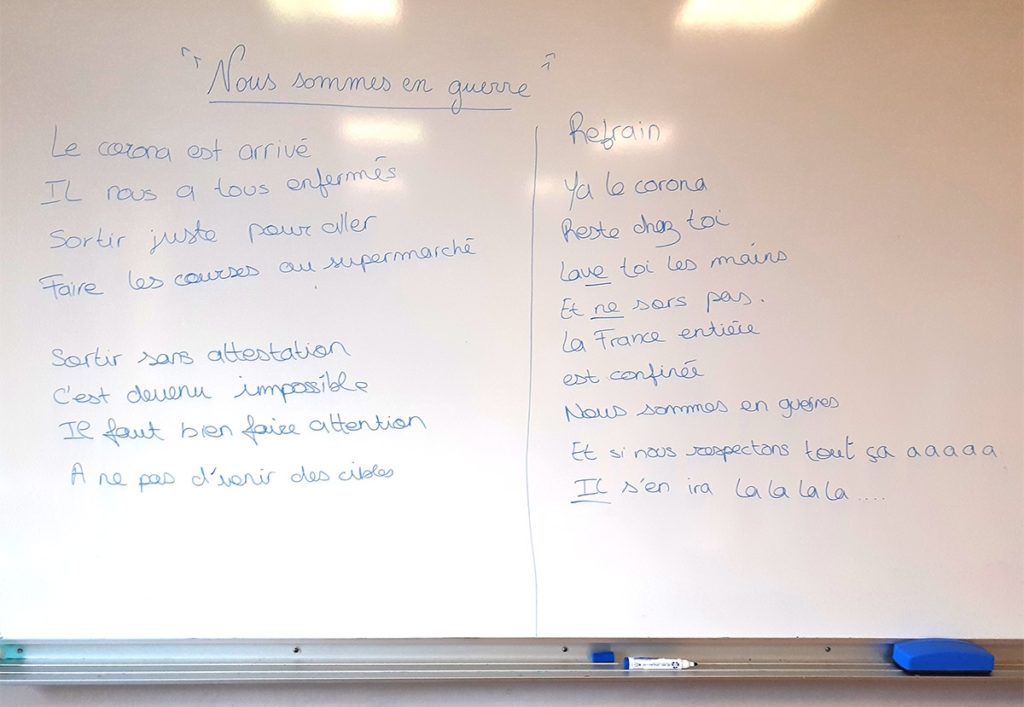 "Nous sommes en guerre"
Le corona est arrivé
IL nous a tous enfermés
Sortir juste pour aller
Faire les courses au supermarché
Sortir sans attestation
C'est devenu impossible
Il faut bien faire attention
A ne pas d'venir des cibles
Refrain
Ya le corona
Reste chez toi
Lave toi les mains
Et ne sors pas.
La France entière
est confinée
Nous sommes en guerres
Et si nous respectons tout ça aaaaa
Il s'en ira la la la la ....